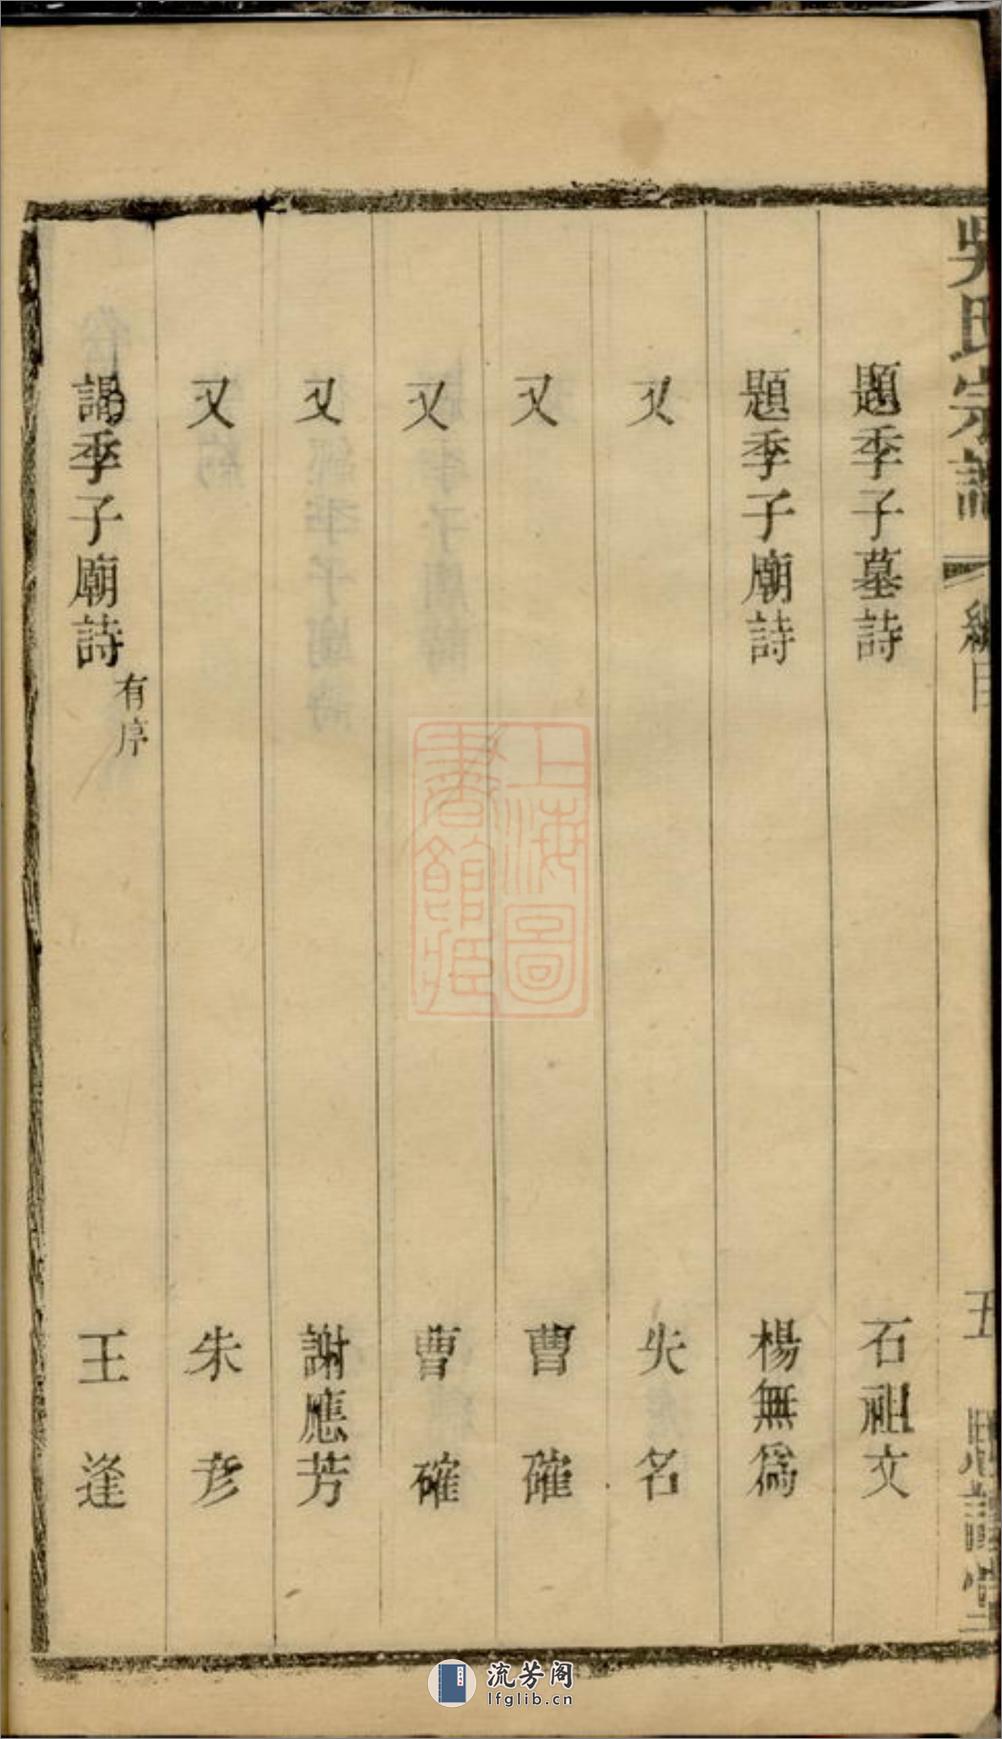 吳氏宗譜
總目
五
思讓堂
題季子墓詩 石祖文
題季子廟詩 楊無為
又 失名
又 曹確
又 曹確
又 謝應芳
又 朱彥
謁季子廟詩 有序 王逢
上海圖書館藏
流芳阁
lfglib.cn